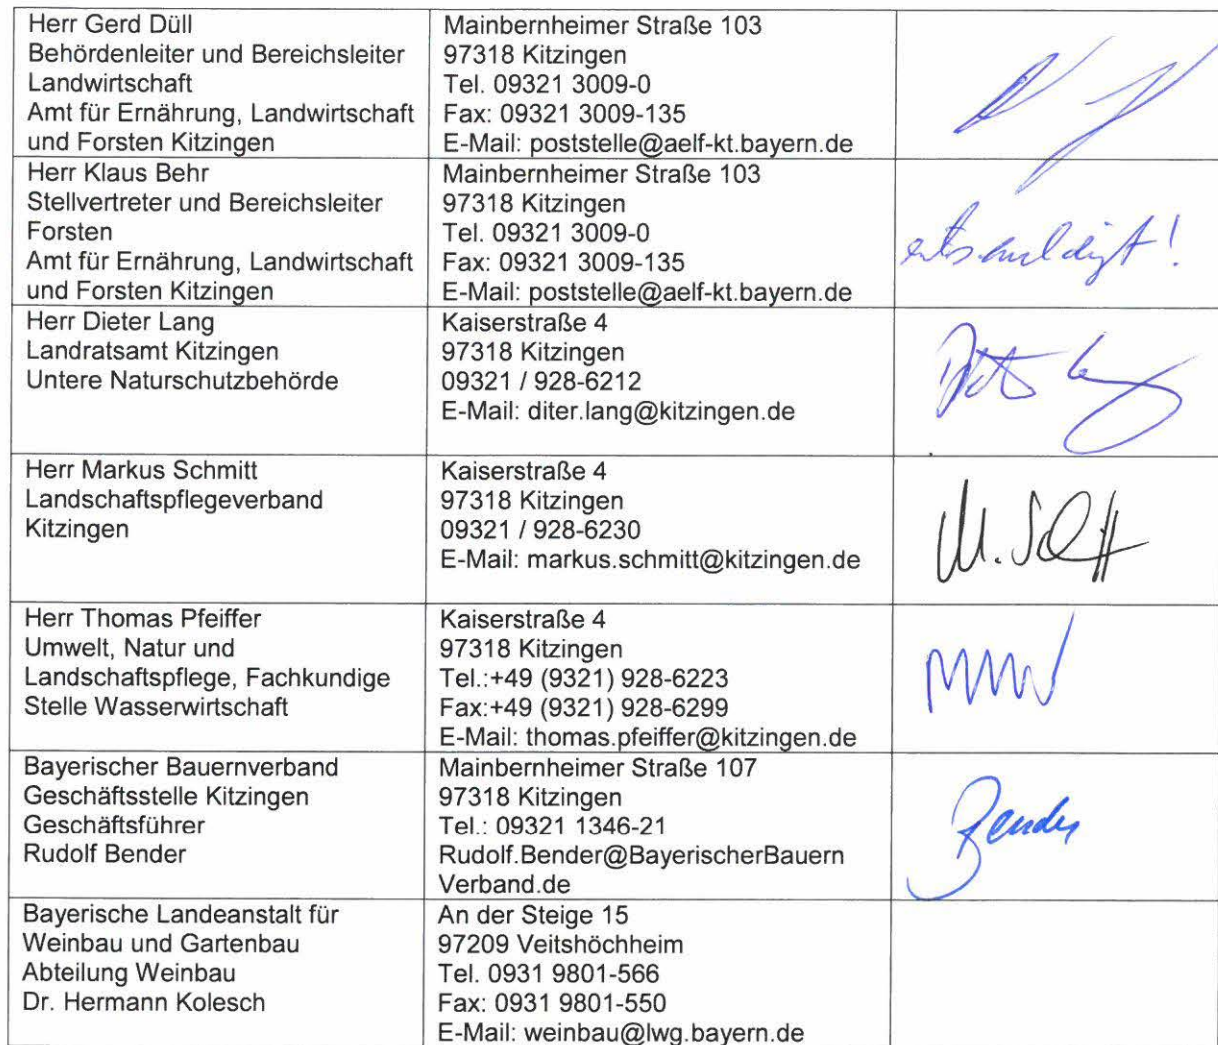 Herr Gerd Düll
Behördenleiter und Bereichsleiter
Landwirtschaft
Amt für Ernährung, Landwirtschaft
und Forsten Kitzingen
Mainbernheimer Straße 103
97318 Kitzingen
Tel. 09321 3009-0
Fax: 09321 3009-135
E-Mail: poststelle@aelf-kt.bayern.de
Herr Klaus Behr
Stellvertreter und Bereichsleiter
Forsten
Amt für Ernährung, Landwirtschaft
und Forsten Kitzingen
Mainbernheimer Straße 103
97318 Kitzingen
Tel. 09321 3009-0
Fax: 09321 3009-135
E-Mail: poststelle@aelf-kt.bayern.de
entschuldigt!
Herr Dieter Lang
Landratsamt Kitzingen
Untere Naturschutzbehörde
Kaiserstraße 4
97318 Kitzingen
09321 / 928-6212
E-Mail: diter.lang@kitzingen.de
Herr Markus Schmitt
Landschaftspflegeverband
Kitzingen
Kaiserstraße 4
97318 Kitzingen
09321 / 928-6230
E-Mail: markus.schmitt@kitzingen.de
Herr Thomas Pfeiffer
Umwelt, Natur und
Landschaftspflege, Fachkundige
Stelle Wasserwirtschaft
Kaiserstraße 4
97318 Kitzingen
Tel.:+49 (9321) 928-6223
Fax:+49 (9321) 928-6299
E-Mail: thomas.pfeiffer@kitzingen.de
Bayerischer Bauernverband
Geschäftsstelle Kitzingen
Geschäftsführer
Rudolf Bender
Mainbernheimer Straße 107
97318 Kitzingen
Tel.: 09321 1346-21
Rudolf.Bender@BayerischerBauern
Verband.de
Bender
Bayerische Landeanstalt für
Weinbau und Gartenbau
Abteilung Weinbau
Dr. Hermann Kolesch
An der Steige 15
97209 Veitshöchheim
Tel. 0931 9801-566
Fax: 0931 9801-550
E-Mail: weinbau@lwg.bayern.de